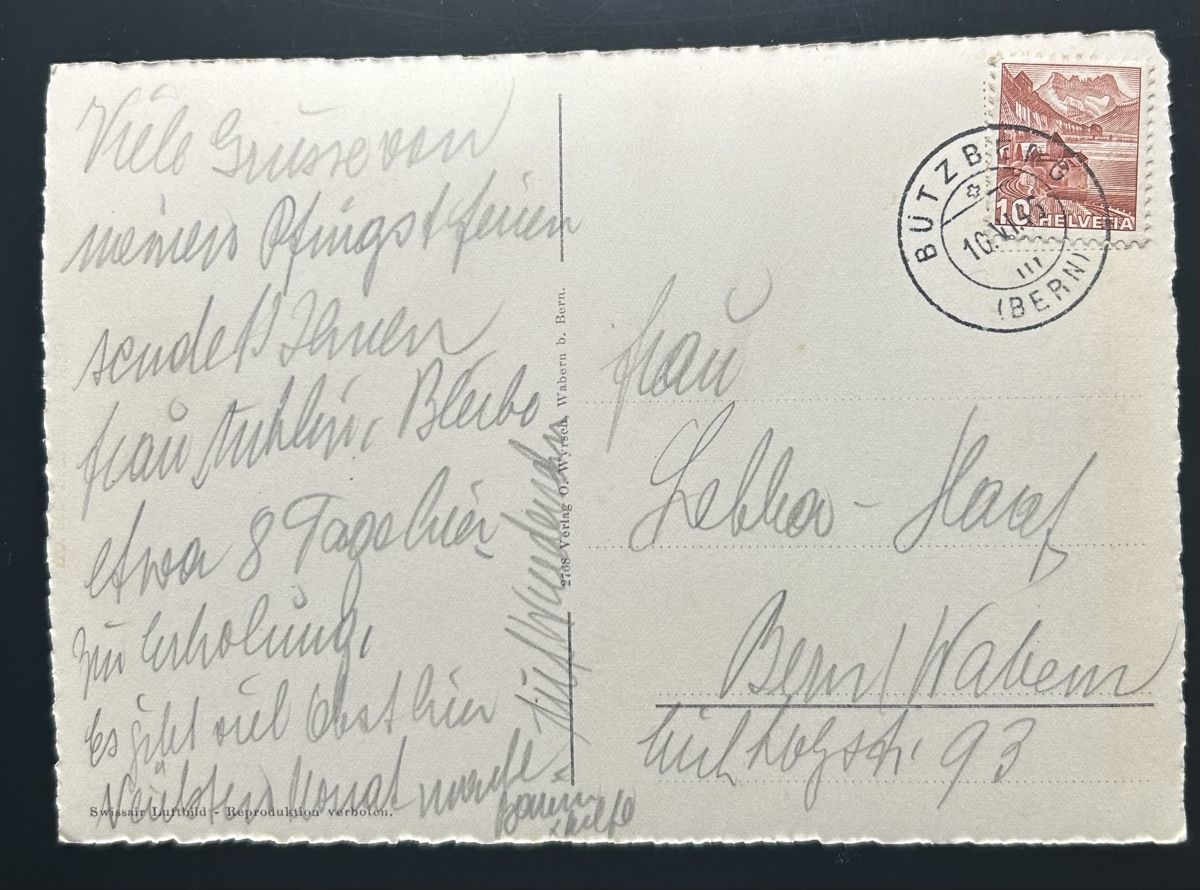 Viele Grüsse von
meinen Pfingstferien
sendet Ihnen
Frau Bleibe
etwa 8 Tage hier
zur Erholung.
Es gibt viel Obst hier
Nächsten Monat
Swissair Luftbild - Reproduktion verboten.
2768 Verlag O. Wyrsch, Wabern b. Bern.
BÜTZBERG
10.VI.
(BERN)
10 HELVETIA
Frau
Bern/Wabern
93